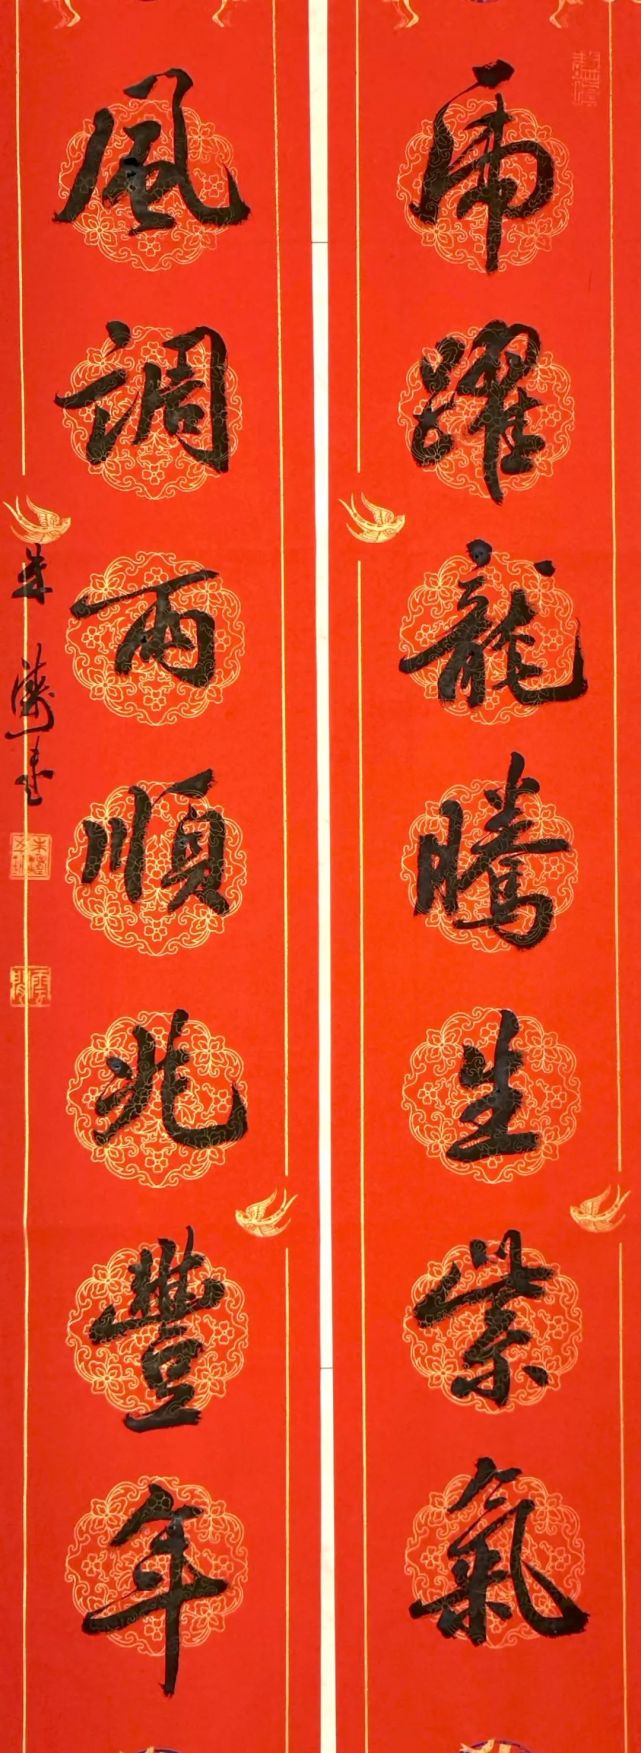 虎躍龍騰生紫氣
風調雨順兆豐年
朱